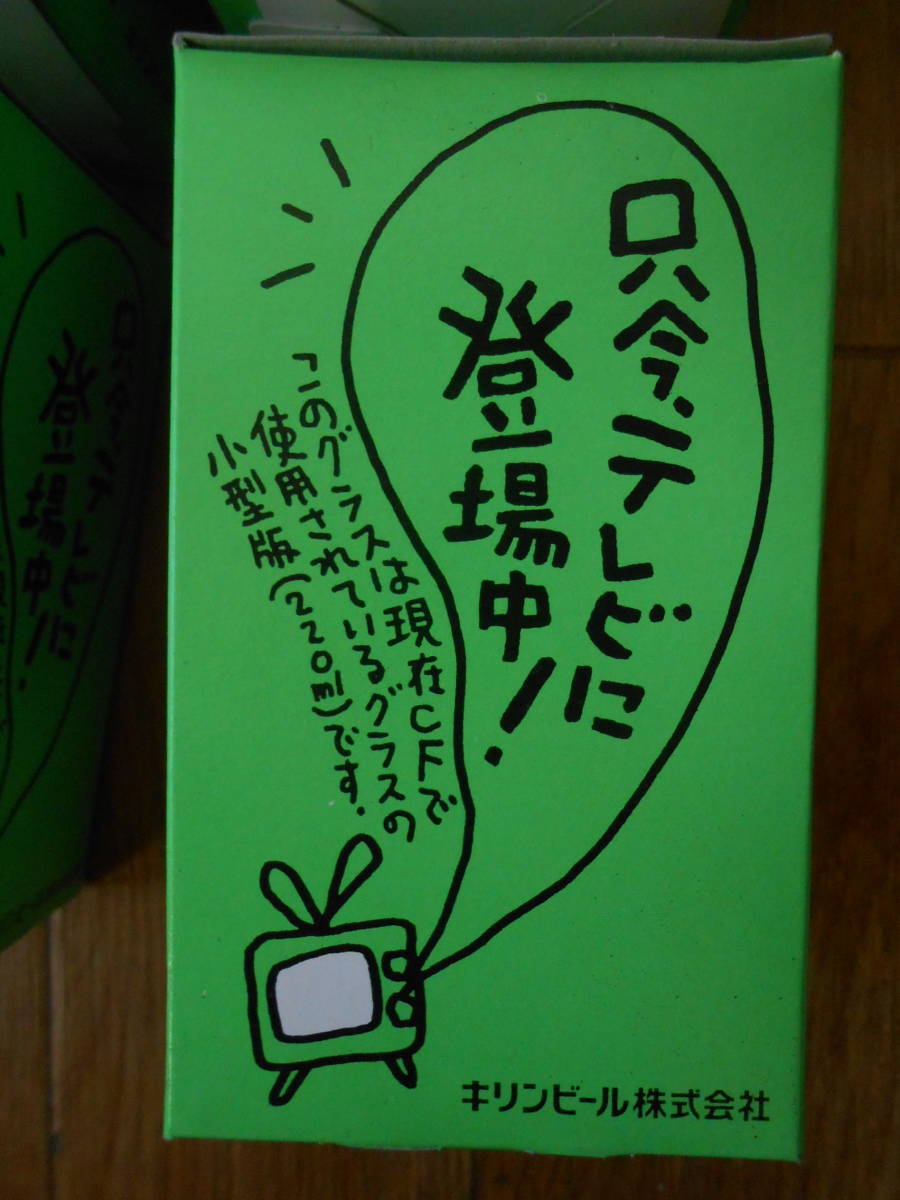 只今、テレビに
登場中!
このグラスは現在CFで
使用されているグラスの
小型版(220ml)です.
キリンビール株式会社
只今、テレビに
登場中!